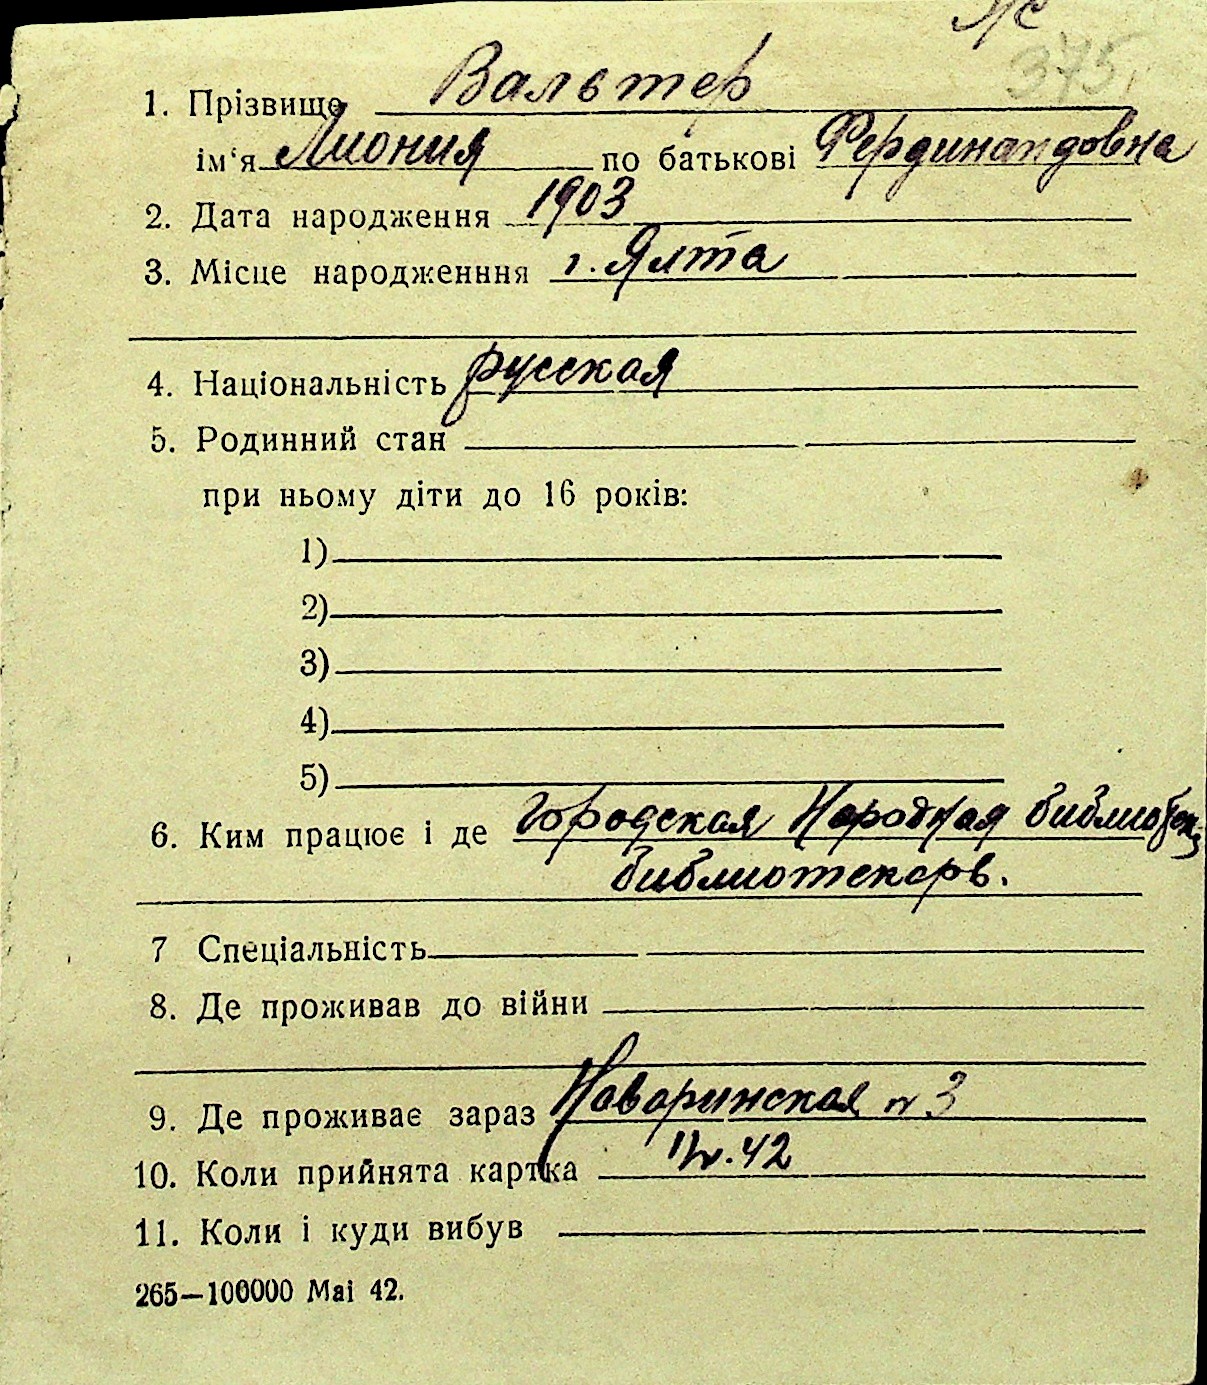 375
1. Прізвище Вальтер
ім‘я Лиония по батькові Фердинандовна
2. Дата народження 1903
3. Місце народженння г. Ялта
4. Національність русская
5. Родинний стан
при ньому діти до 16 років:
1)
2)
3)
4)
5)
6. Ким працює і де Городская Народная библиотека
библиотекарь.
7 Спеціальність
8. Де проживав до війни
9. Де проживає зараз Наваринская № 3
10. Коли прийнята картка IV. 42
11. Коли і куди вибув
265—100000 Маі 42.